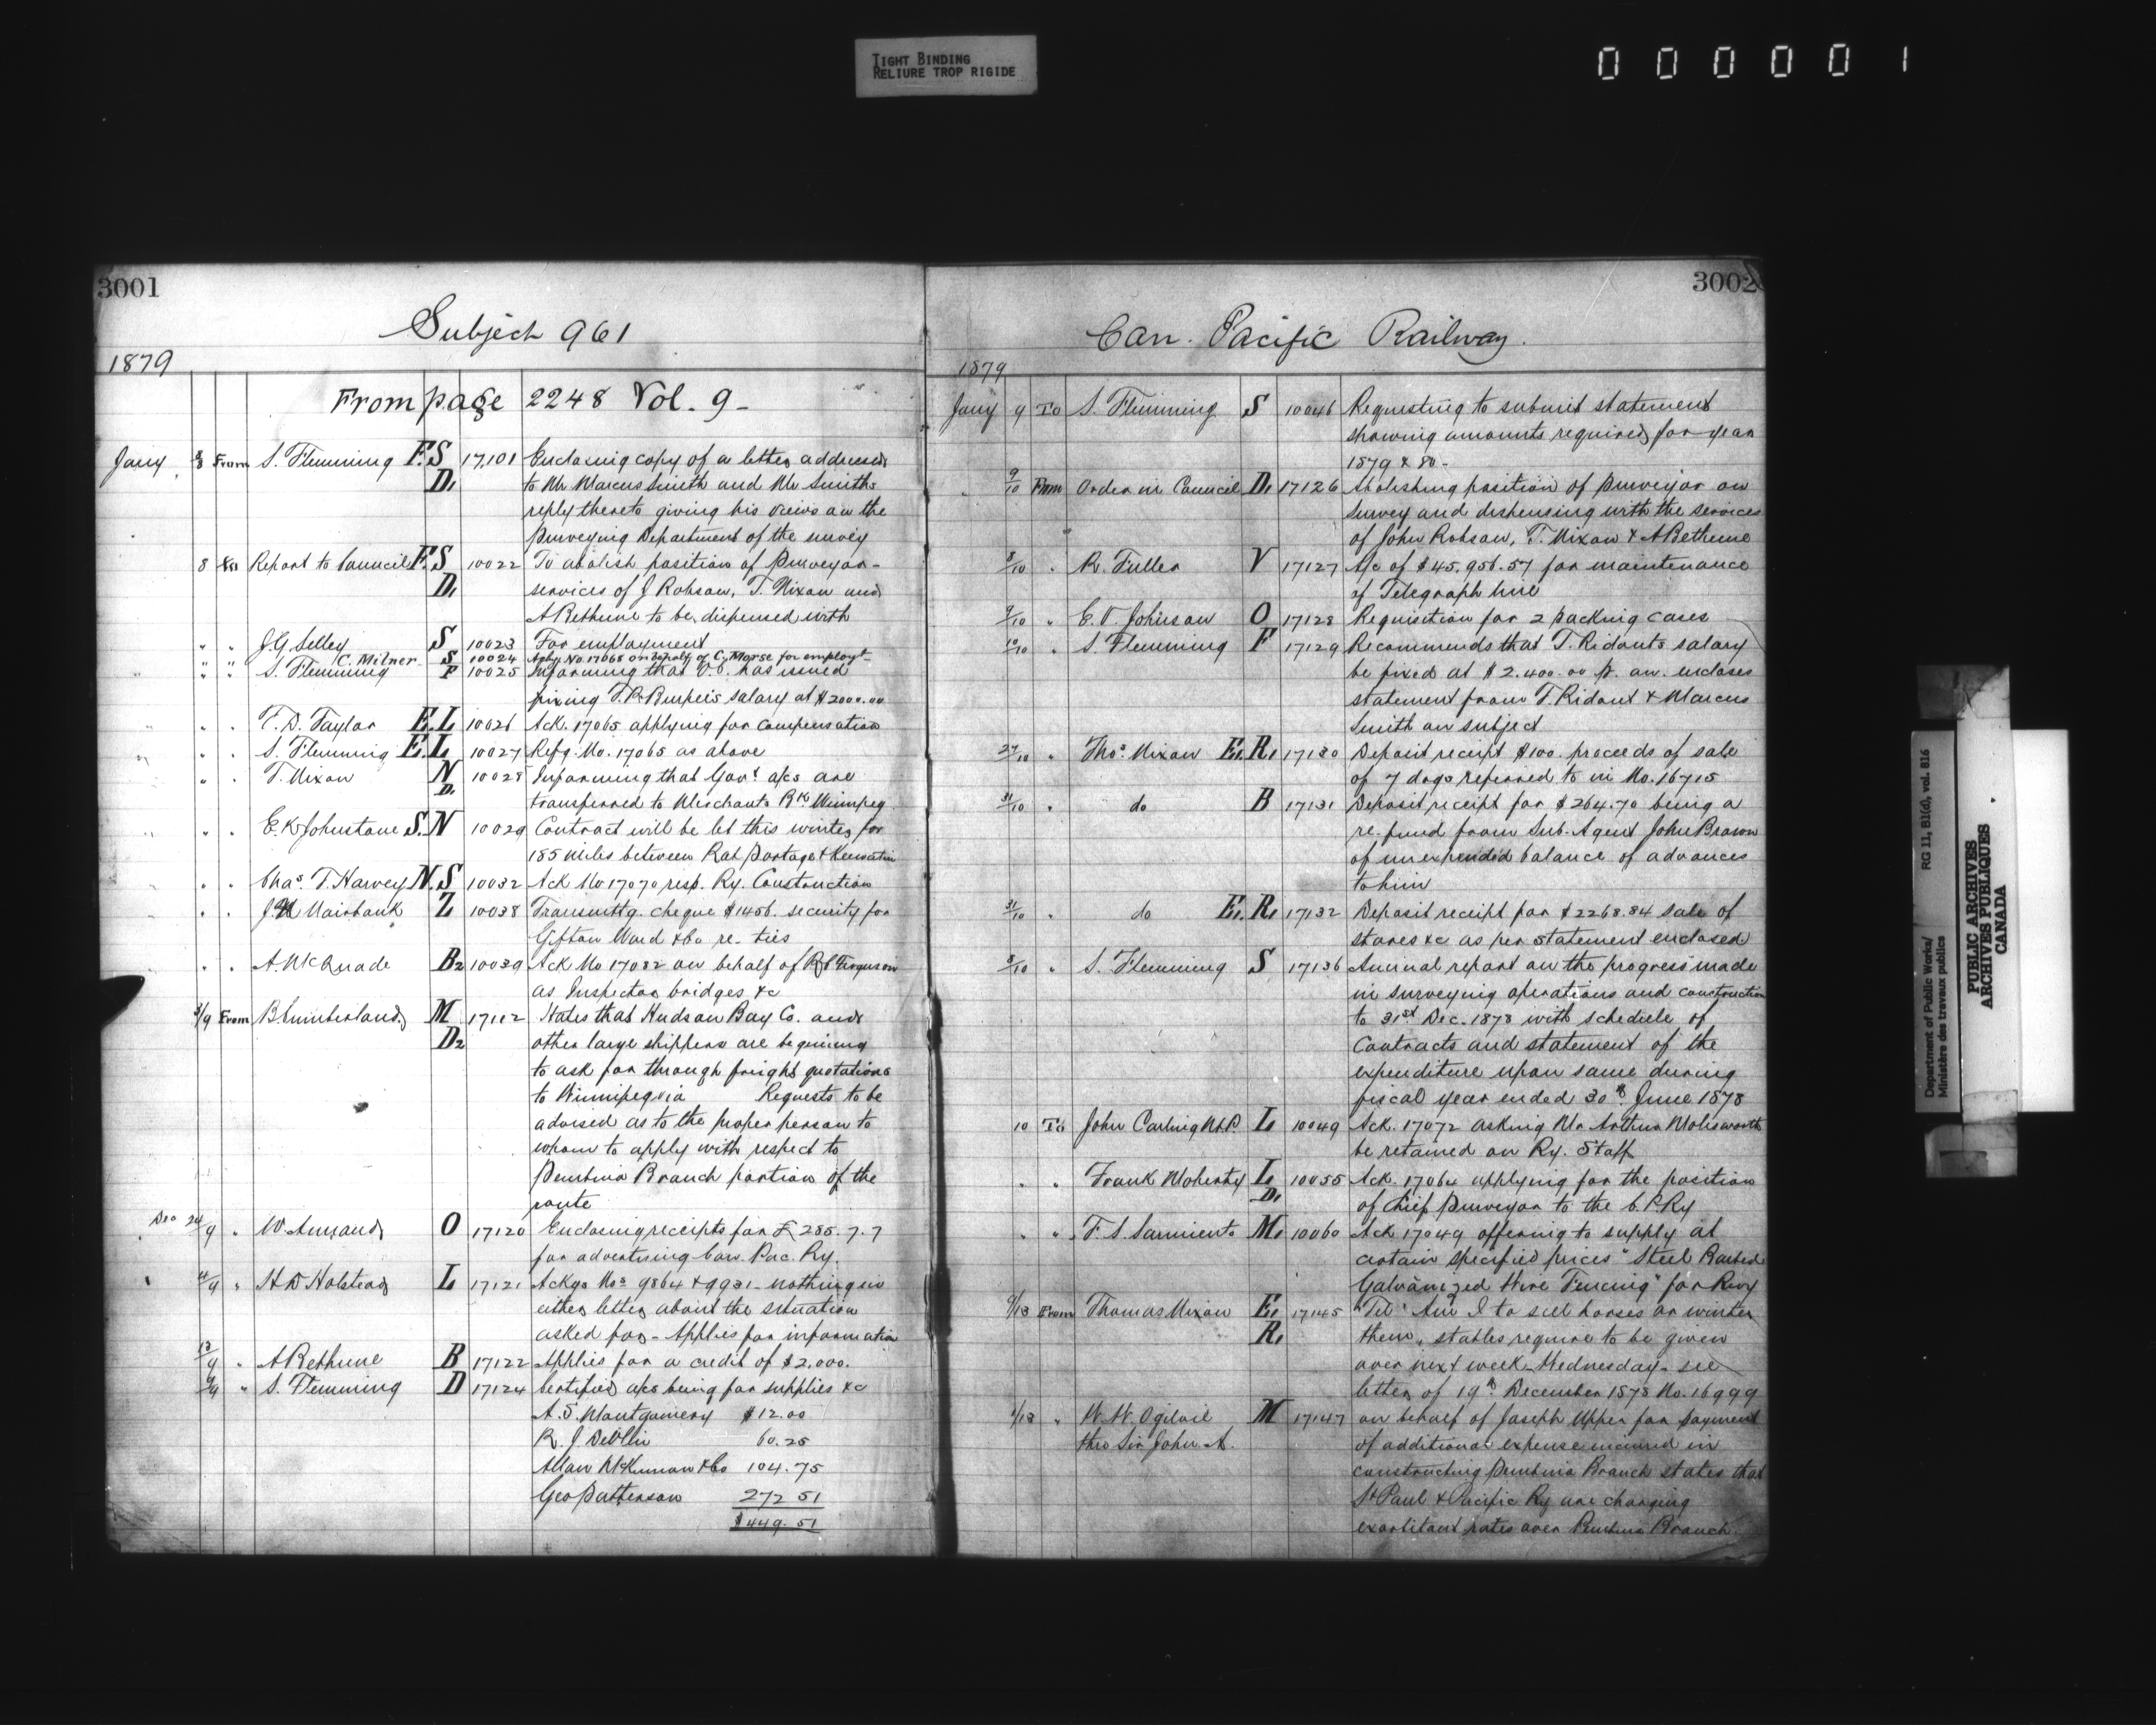 TIGHT BINDING
RELIURE TROP RIGIDE
0 0 0 0 0 1
3001
Subject 961
1879
From page 2248 Vol. 9-
Jany 8/8 From S. Flemming F.S 17,101 Enclosing copy of a letter addressed
D1 to Mr Marcus Smith and Mr Smith's
reply thereto giving his views on the
Purveying Department of the survey
8 To Report to Council F.S 10022 To abolish position of Purveyor -
D1 services of J Robson, T. Nixon and
A Bethune to be dispensed with
" " J.G Selley S 10023 For employment
" " C. Milner S 10024 Ackg No. 17068 on behalf of C. Morse for employt
" " S. Flemming F 10025 Informing that O.C. has issued
fixing salary at $2000.00
" " T. D. Taylor E.L 10026 Ack. 17065 applying for compensation
" " S. Flemming E.L 10027 Refg. No. 17065 as above
" " T. Nixon N 10028 Informing that Govt a/cs are
D1 transferred to Merchants Bk Winnipeg
" " E. K Johnstone S.N 10029 Contract will be let this winter for
185 miles between Rat Portage & Keewatin
" " Chas. T. Harvey N.S 10032 Ack No 17070 resp. Ry. Construction
" " Fairbank Z 10038 Transmittg. cheque $1456. security for
Ward & Co re- ties
" " A. McQuade B2 10039 Ack No 17082 on behalf of Ferguson
as Inspector bridges &c
3/9 From B Cumberland M 17112 States that Hudson Bay Co. and
D2 other large shippers are beginning
to ask for through freight quotations
to Winnipeg via Requests to be
advised as to the proper person to
whom to apply with respect to
Pembina Branch portion of the
route
Dec 24/9 " W Annand O 17120 Enclosing receipts for £285.7.7
for advertising Can. Pac. Ry.
" H D Holstead L 17121 Ackgs Nos 9864 & 9931 - nothing in
either letter about the situation
asked for - Applies for information
13/9 " A Bethune B 17122 Applies for a credit of $2,000.
9/9 " S. Flemming D 17124 Certified a/cs being for supplies &c
A. S. Montgomery $12.00
R. J Devlin 60.25
Allan McKinnon & Co 104.75
Geo Patterson 272 51
$449.51
3002
Can. Pacific Railway.
1879
Jany 9 To S. Flemming S 10046 Requesting to submit statement
showing amounts required for year
1879 & 80 -
" 9/10 From Order in Council D1 17126 Abolishing position of Purveyor on
survey and dispensing with the services
of John Robson, T. Nixon & A Bethune
8/10 " R. Fuller V 17127 A/c of $45,956.57 for maintenance
of Telegraph line
9/10 " E. V. Johnson O 17128 Requisition for 2 packing cases
10/10 " S. Flemming F 17129 Recommends that T. Ridouts salary
be fixed at $2.400.00 p. an. encloses
statement from T. Ridout & Marcus
Smith on subject
27/10 " Thos. Nixon E1.R1 17130 Deposit receipt $100. proceeds of sale
of 7 dogs referred to in No. 16715
31/10 " do B 17131 Deposit receipt for $264.70 being a
re-fund from Sub-Agent John Brown
of unexpended balance of advances
to him
31/10 " do E1.R1 17132 Deposit receipt for $2268.84 sale of
stores &c as per statement enclosed
8/10 " S. Flemming S 17136 Annual report on the progress made
in surveying operations and construction
to 31st Dec. 1878 with schedule of
Contracts and statement of the
expenditure upon same during
fiscal year ended 30th June 1878
10 To John Carling M.P. L 10049 Ack. 17072 asking Mr Arthur Molesworth
be retained on Ry. Staff
" " Frank Moberly L 10055 Ack. 17064 applying for the position
D1 of Chief Purveyor to the C.P.Ry
" " F. S. Sarmiento M1 10060 Ack 17049 offering to supply at
certain specified prices "Steel Barbed
Galvanized Wire Fencing" for Rwy
9/13 From Thomas Nixon E1 17145 "Tel" Am I to sell horses or winter
R1 them, stables require to be given
over next week - Wednesday - see
letter of 19th December 1878 No. 16999
" W. W. Ogilvie M 17147 on behalf of Joseph Upper for payment
thro Sir John A. of additional expense incurred in
constructing Pembina Branch states that
St Paul & Pacific Ry are charging
exorbitant rates over Pembina Branch
Department of Public Works/ RG 11, B1(d), vol. 816
Ministère des travaux publics
PUBLIC ARCHIVES
ARCHIVES PUBLIQUES
CANADA